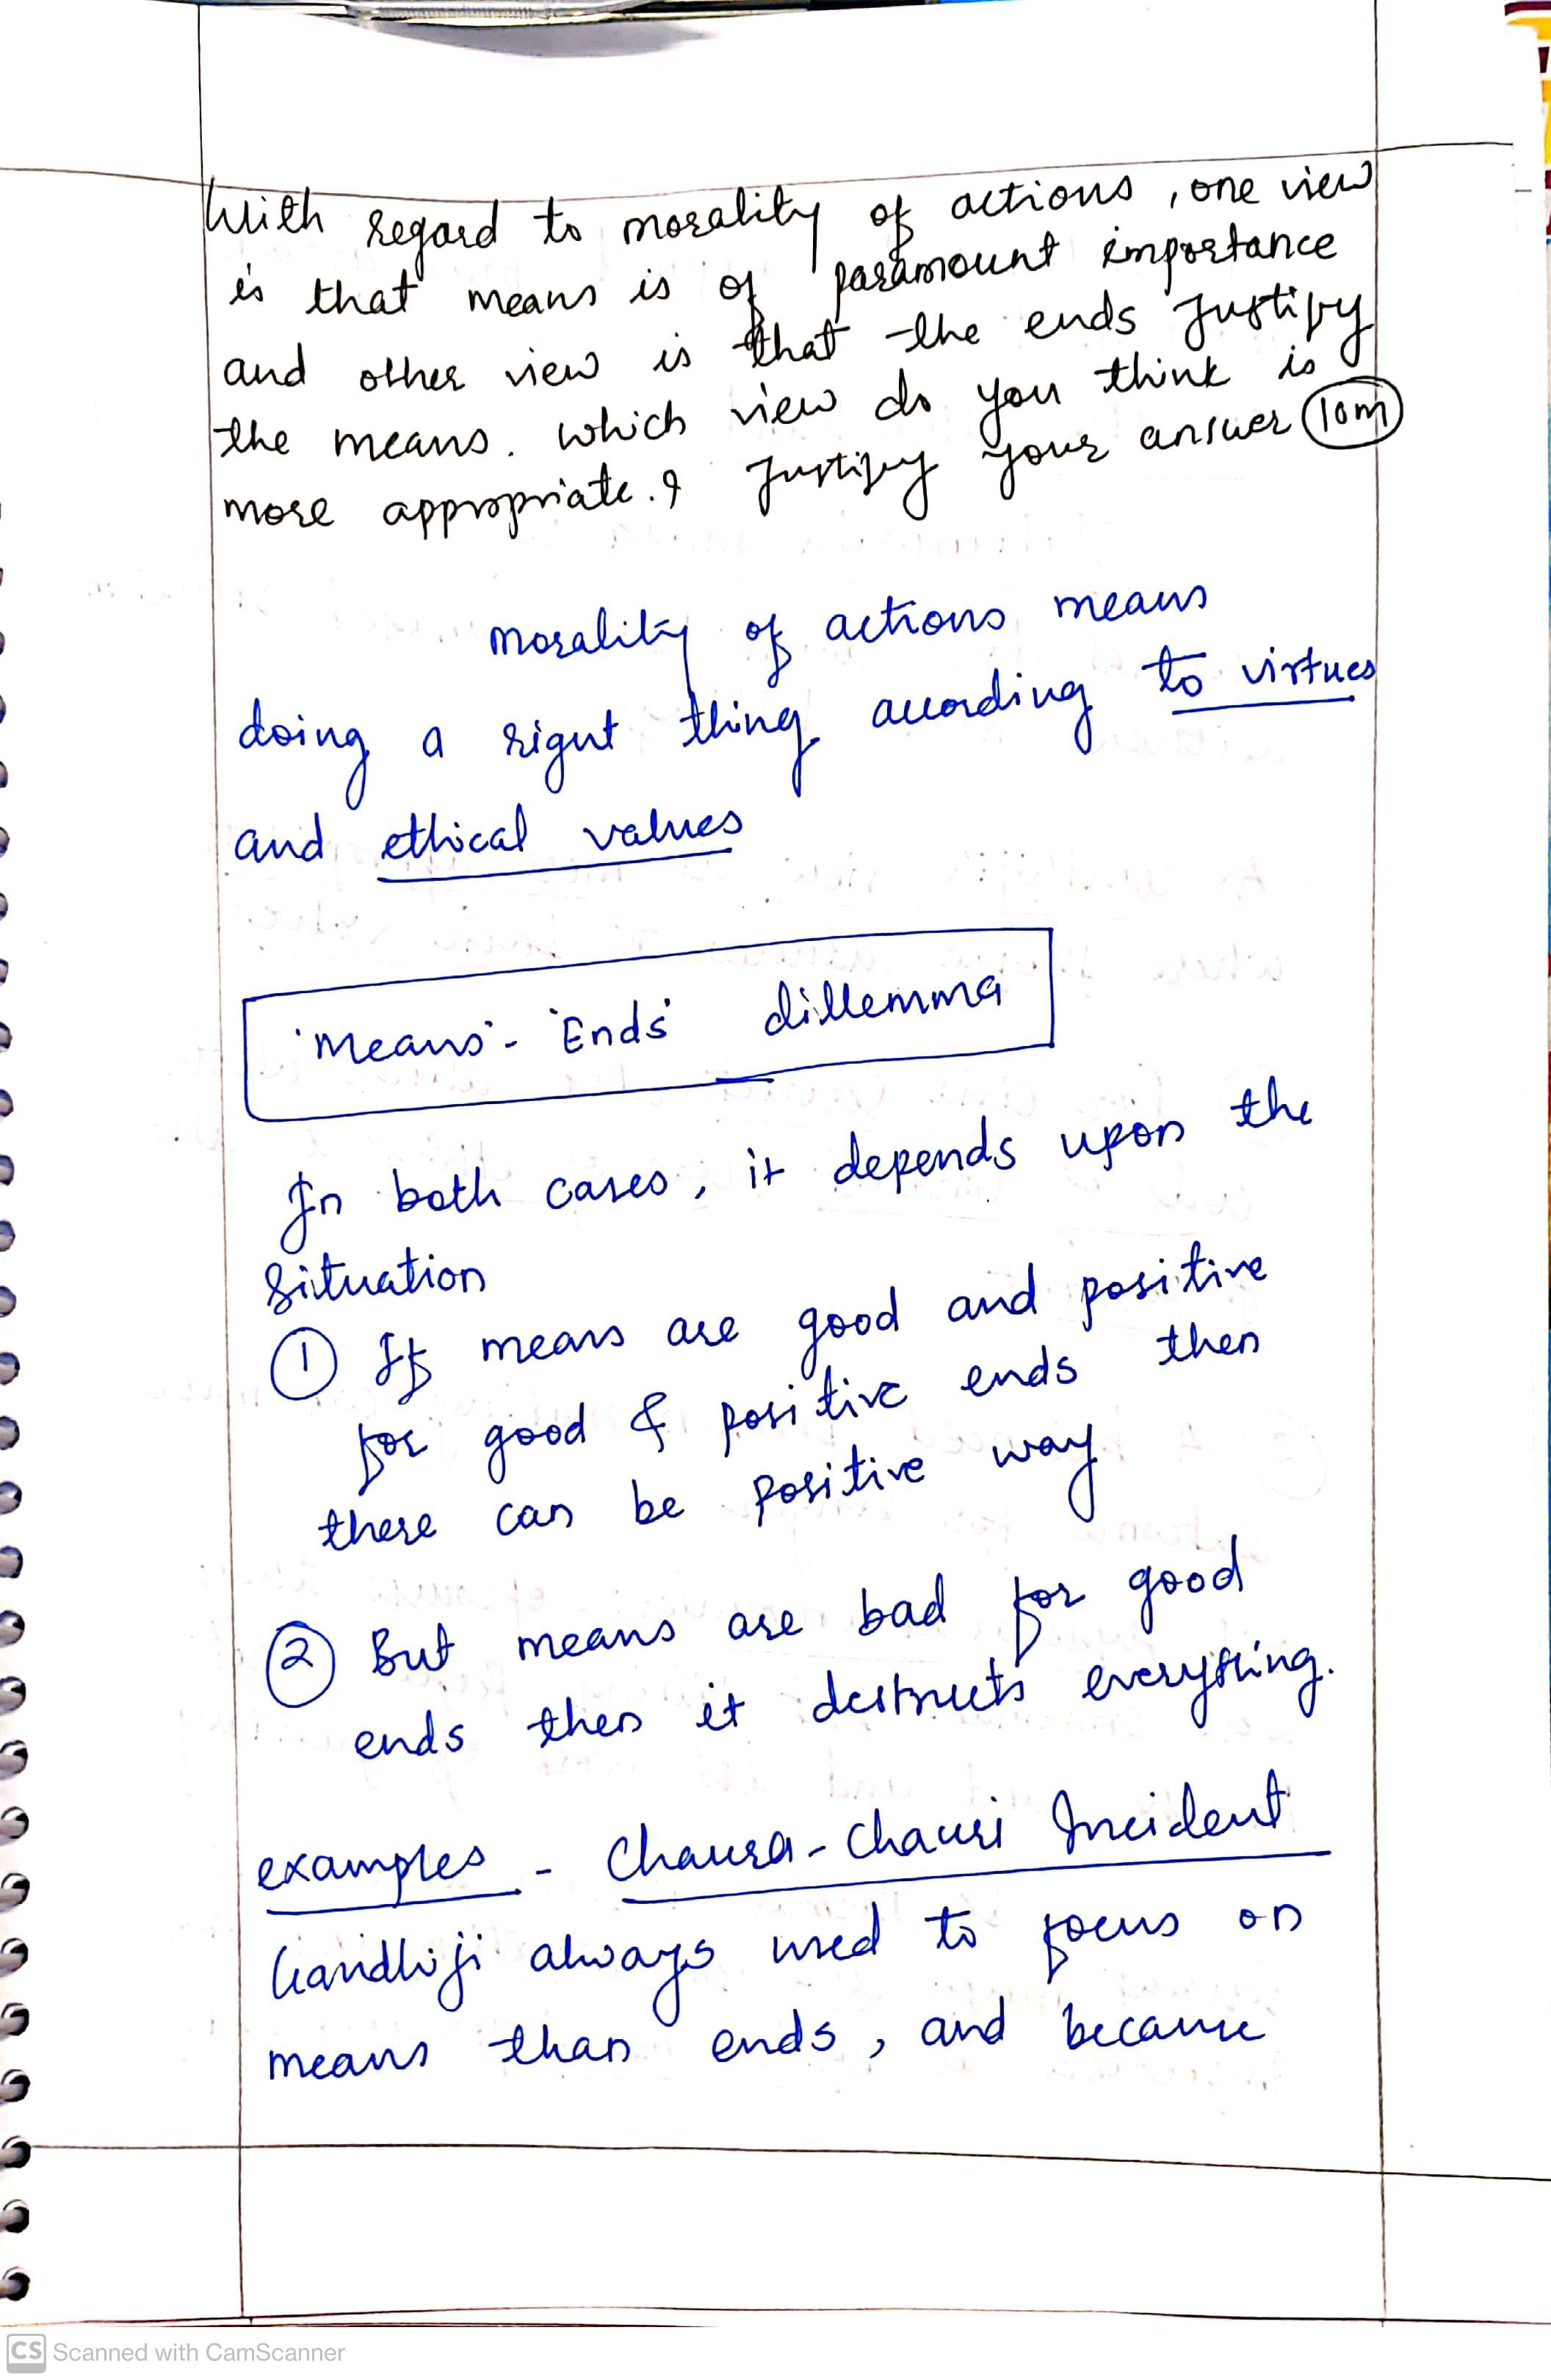 With regard to morality of actions, one view
is that means is of paramount importance
and other view is that the ends Justify
the means. which view do you think is
more appropriate. & Justify your answer 10m
morality of actions means
doing a right thing according to virtues
and ethical values
'Means' - 'Ends' dillemma
In both cases, it depends upon the
situation
① If means are good and positive
for good & positive ends then
there can be positive way
② But means are bad for good
ends then it destructs everything.
examples - Chaura-Chauri Incident
Gandhiji always used to focus on
means than ends, and because
CS Scanned with CamScanner